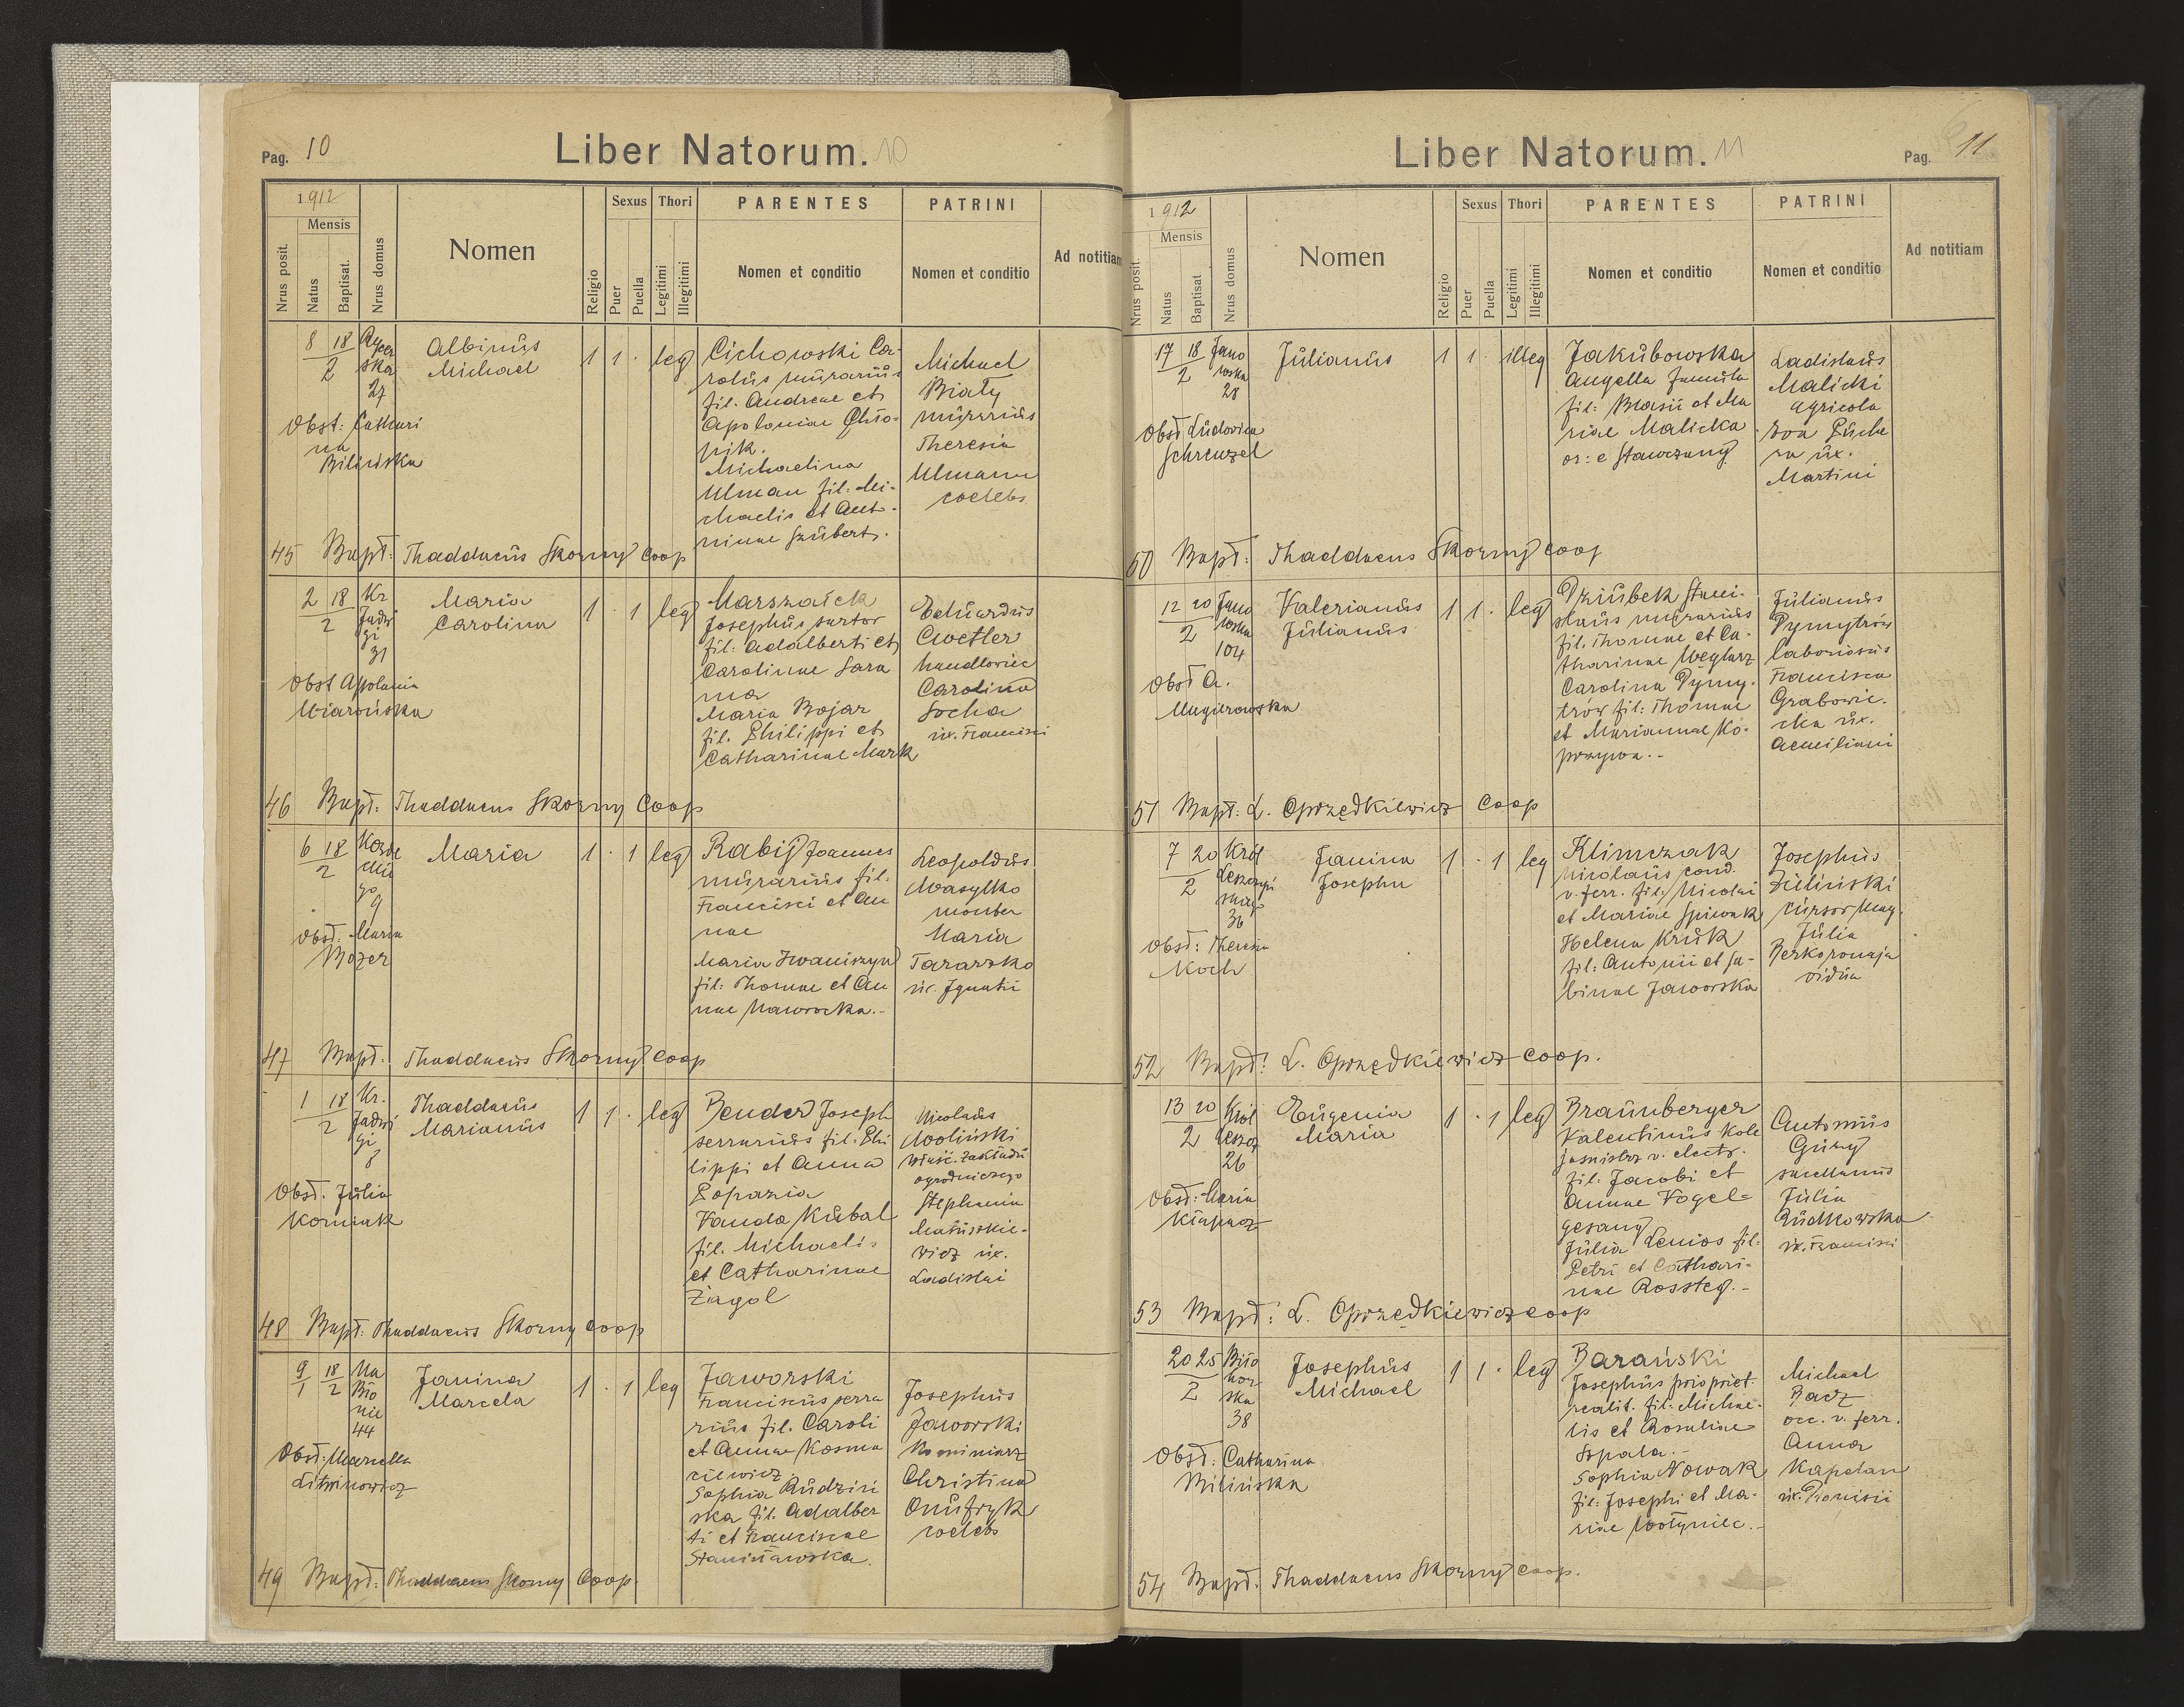 Pag. 10
Liber Natorum. 10
1912
Mensis
Nrus posit.
Natus
Baptisat.
Nrus domus
Nomen
Religio
Sexus
Puer
Puella
Thori
Legitimi
Illegitimi
PARENTES
Nomen et conditio
PATRINI
Nomen et conditio
Ad notitiam
8 18
2
ska
27
Albinus
Michael
1 1 . leg
Cichowski Ca-
rolus murarius
fil. Andreae et
Apoloniae
pik.
Michaelina
Ulman fil: Mi-
chaelis et Anto-
ninae Szubert.
Michael
Biały
murarius
Theresia
Ulmann
coelebs
Obst: Cathari
na
Bilińska
45 Bapt: Thaddaeus Skorny Coop
2 18
2
Kr
Jadwi
gi
31
Maria
Carolina
1 . 1 leg
Marszałek
Josephus sartor
fil: Adalberti et
Carolinae Sara
na
Maria Bojar
fil. Philippi et
Catharinae Mark
Eduardus
Cwetler
handlowiec
Carolina
Socha
ux. Francisci
Obst Apolonia
46 Bapt: Thaddaeus Skorny Coop
6 18
2
9
Maria
1 . 1 leg
Rabij Joannes
murarius fil.
Francisci et An
nae
Maria Iwaniszyn
fil: Thomae et An
nae Nawrocka.-
Leopoldus
Wasylko
monter
Maria
Tararzko
ux. Ignatii
Obst: Maria
Mozer
47 Bapt: Thaddaeus Skorny Coop
1 18
2
Kr.
Jadwi
gi
8
Thaddaeus
Marianus
1 1 . leg
Bender Joseph
serrarius fil. Phi
lippi et Anna
Vanda Kubal
fil. Michaelis
et Catharinae
Zagol
Nicolaus
Woliński
właść. zakładu
ogrodniczego
Stephania
Matuszkie-
wicz ux.
Ladislai
Obst. Julia
Korniak
48 Bapt: Thaddaeus Skorny Coop
9 18
1 2
Na
Bło
nie
44
Janina
Marcela
1 . 1 leg
Jaworski
Franciscus serra
rius fil. Caroli
et Annae Kosma
ciewicz
Sophia Rudziń
ska fil. Adalber
ti et Franciscae
Stanisławska.
Josephus
Jaworski
Kominiarz
Christina
Onufryk
coelebs
Obst: Marcella
Litwinowicz
49 Bapt: Thaddaeus Skorny Coop.
Liber Natorum. 11
Pag. 11
1912
Mensis
Nrus posit.
Natus
Baptisat
Nrus domus
Nomen
Religio
Sexus
Puer
Puella
Thori
Legitimi
Illegitimi
PARENTES
Nomen et conditio
PATRINI
Nomen et conditio
Ad notitiam
17 18
2
Jano
wska
28
Julianus
1 1 . illeg
Jakubowska
Angella famula
fil: Blasii et Ma
riae Malicka
or: e Stawczany
Ladislaus
Malicki
agricola
Eva Pucha
ux.
Martini
Obst Ludovica
Schrenzel
50 Bapt: Thaddaeus Skorny coop
12 20
2
Jano
wska
104
Valerianus
Julianus
1 1 . leg
Dziubek Stani-
slaus murarius
fil. Thomae et Ca-
tharinae Węglarz
Carolina Dymy-
trów fil: Thomae
et Mariannae Ko-
przywa.-
Julianus
Dymytrów
laboriosus
Francisca
Grabowie-
cka ux.
Aemiliani
Obst A.
Magierowska
51 Bapt: L. Oprzędkiewicz Coop
7 20
2
Król
Leszczyń
skiego
36
Janina
Josepha
1 . 1 leg
Klimczak
Nicolaus cond.
v. ferr. fil: Nicolai
et Mariae Spiwak
Helena Kruk
fil: Antonii et Sa-
binae Jaworska
Josephus
Zieliński
cursor Mag.
Julia
vidua
Obst: Theresa
Koch
52 Bapt: L. Oprzędkiewicz coop.
13 20
2
Król
Leszcz
26
Eugenia
Maria
1 . 1 leg
Braunberger
Valentinus kole
jomistrz v. electr.
fil. Jacobi et
Annae Vogel=
gesang
Julia Lenios fil:
Petri et Cathari-
nae Rossteg.-
Antonius
Guzy
sacellanus
Julia
Rudkowska
ux. Francisci
Obst: Maria
53 Bapt: L. Oprzędkiewicz coop
20 25
2
ska
38
Josephus
Michael
1 1 . leg
Barański
Josephus propriet.
realit. fil. Michae-
lis et Rosaliae
Szpala.-
Sophia Nowak
fil: Josephi et Ma-
riae Wołyniec.-
Michael
Bacz
occ. v. ferr.
Anna
Kapelan
ux. Dionisii
Obst: Catharina
Bilińska
54 Bapt. Thaddaeus Skorny coop.